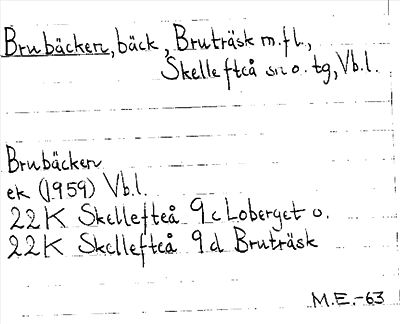 Brubäcken, bäck, Bruträsk m.fl.,
Skellefteå sn o. tg, Vb.l.
Brubäcken
ek (1959) Vb.l.
22K Skellefteå 9c Loberget o.
22K Skellefteå 9d Bruträsk
M.E.-63